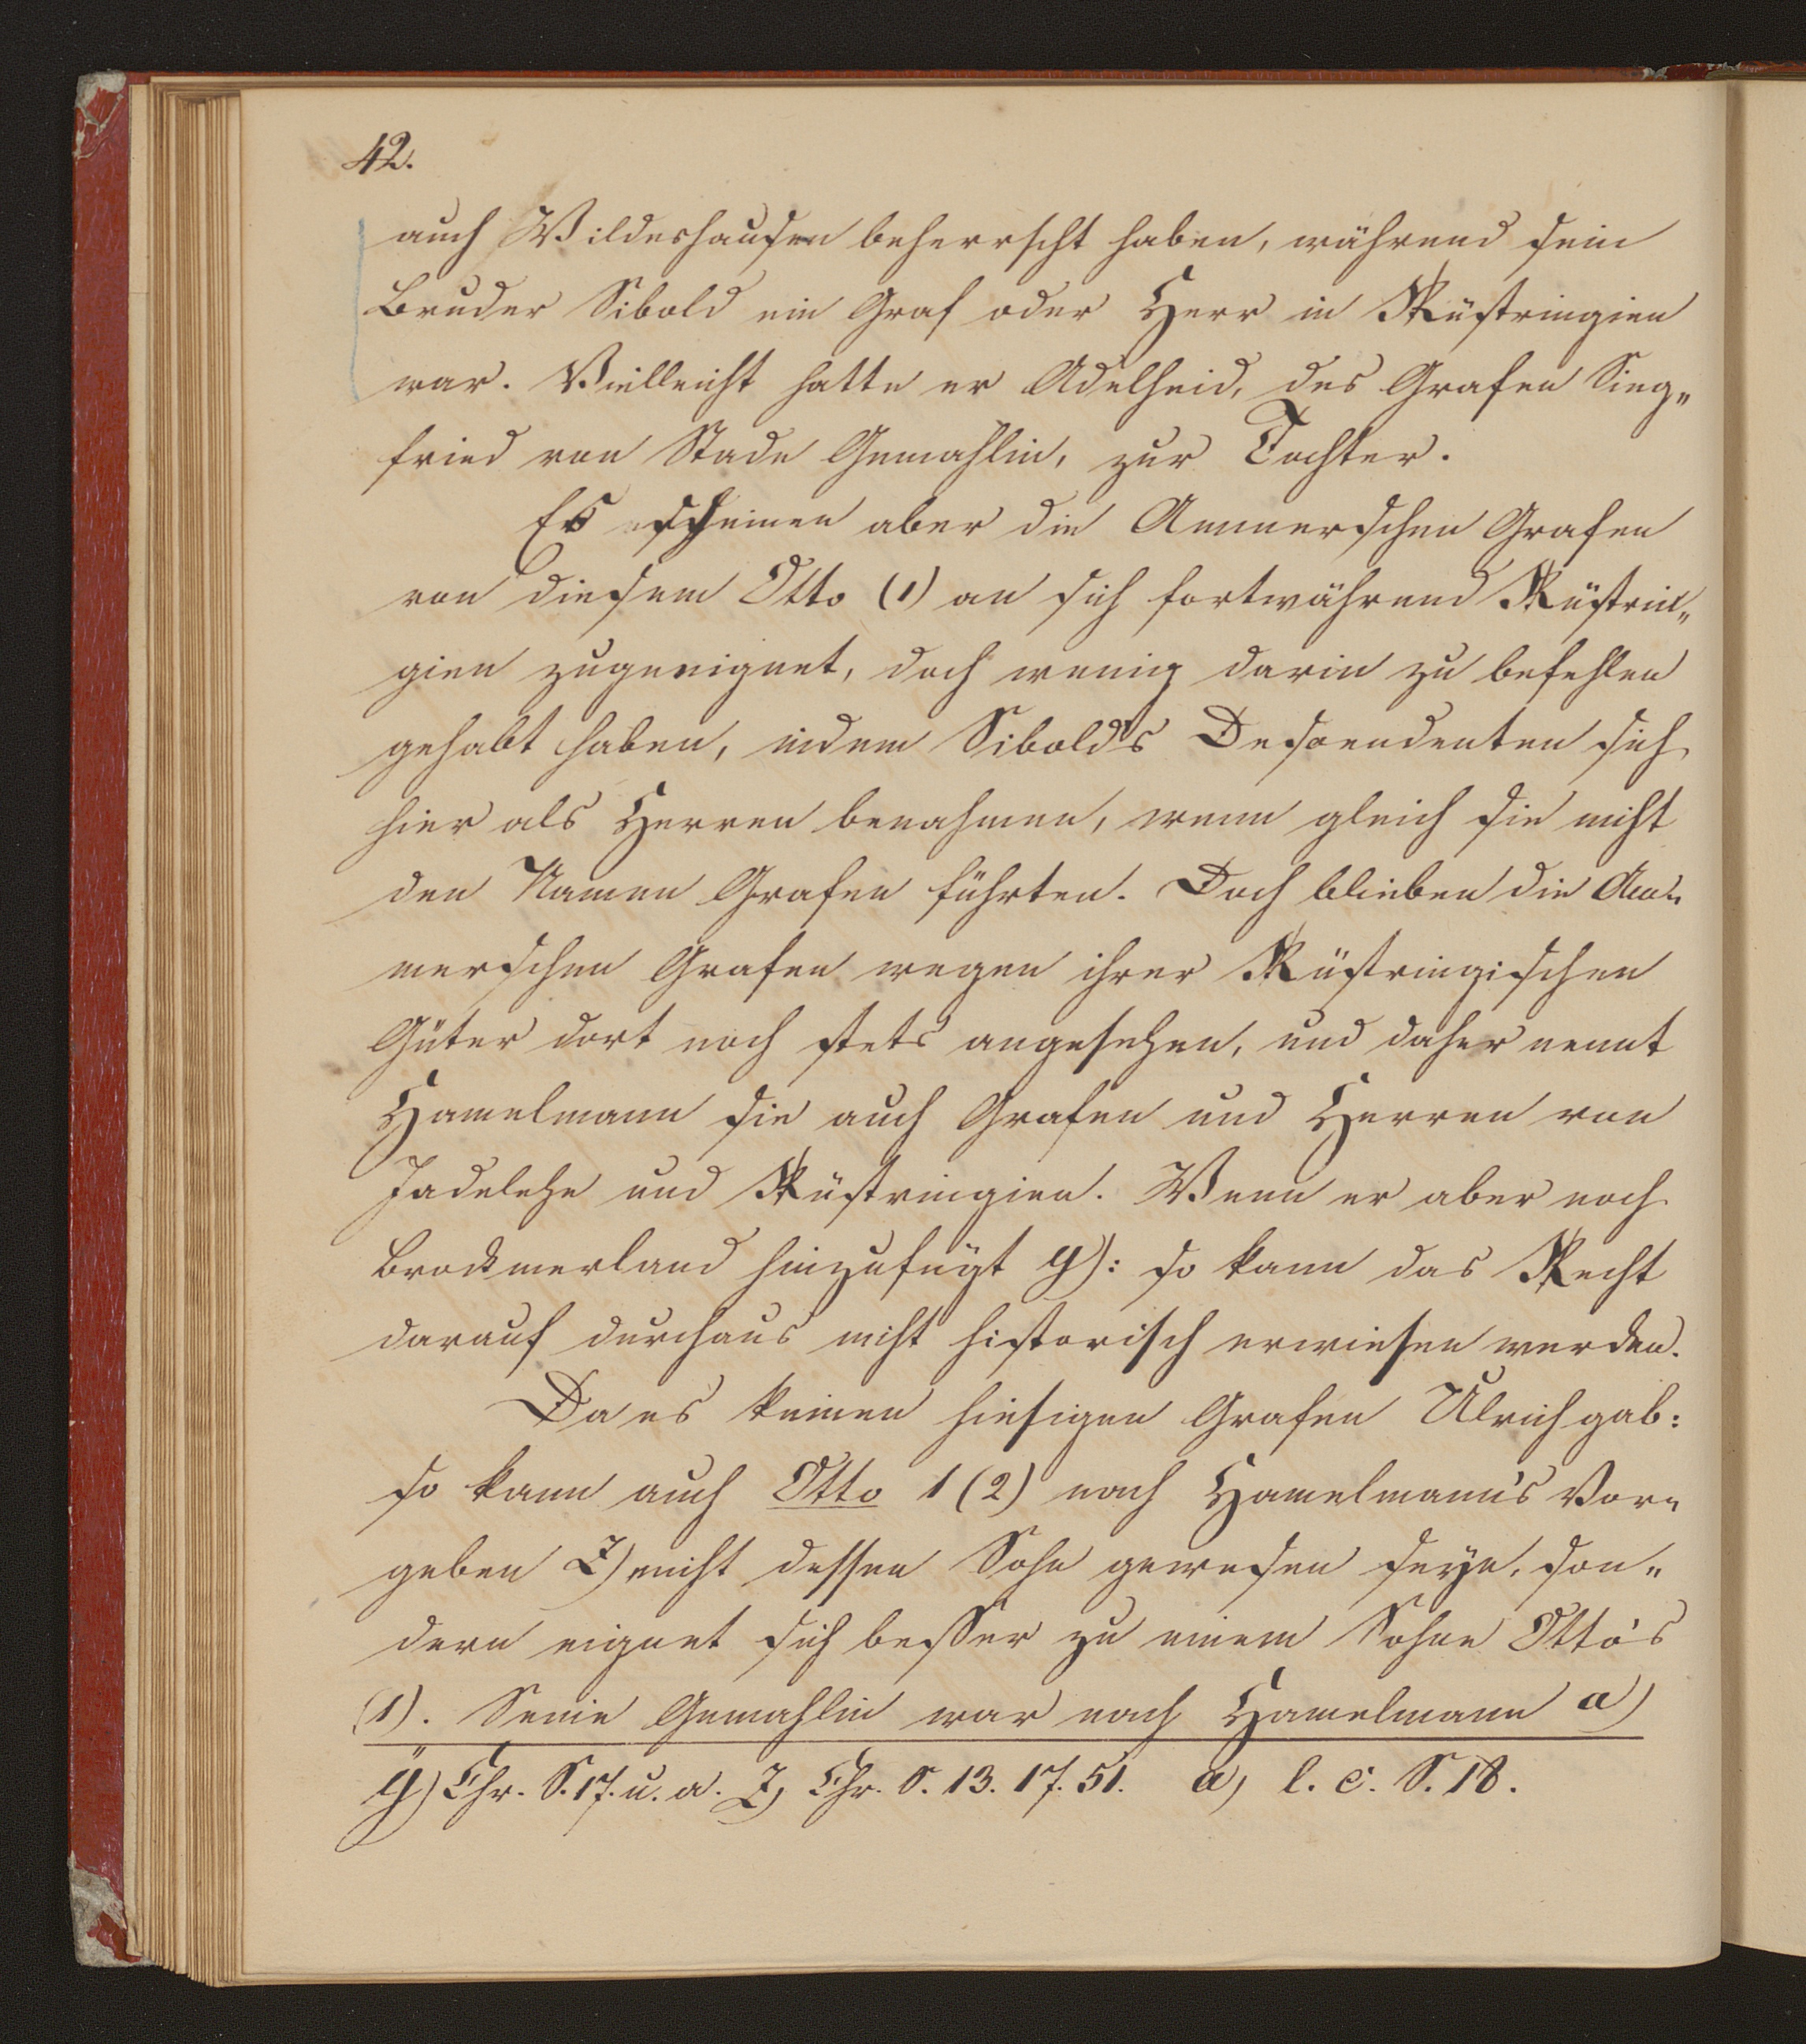 42.
auch Wildeshausen beherrscht haben, während sein
Bruder Sibold ein Graf oder Herr in Rüstringien
war. Vielleicht hatte er Adelheid, des Grafen Sieg„
fried von Stade Gemahlin, zur Tochter.
Es scheinen aber die Ammerschen Grafen
von diesem Otto (1) an sich fortwährend Rüstrin„
gien zugeeignet, doch wenig darin zu befehlen
gehabt haben, indem Sibold's Descendenten sich
hier als Herren benahmen, wenn gleich sie nicht
den Namen Grafen führten. Doch blieben die Am„
merschen Grafen wegen ihrer Rüstringischen
Güter dort noch stets angesehen, und daher nennt
Hamelmann sie auch Grafen und Herren von
Jadelehe und Rüstringien. Wenn er aber noch
Brockmerland hinzufügt y): so kann das Recht
darauf durchaus nicht historisch erwiesen werden.
Da es keinen hiesigen Grafen Ulrich gab:
so kann auch Otto 1 (2) nach Hamelmann's Vor„
geben z) nicht dessen Sohn gewesen seyn, son„
dern eignet sich besser zu einem Sohne Otto's
(1). Seine Gemahlin war nach Hamelmann a)
ÿ) Chr. S. 17. u. a. z) Chr. S. 13. 17. 51. a) l. c. S. 18.